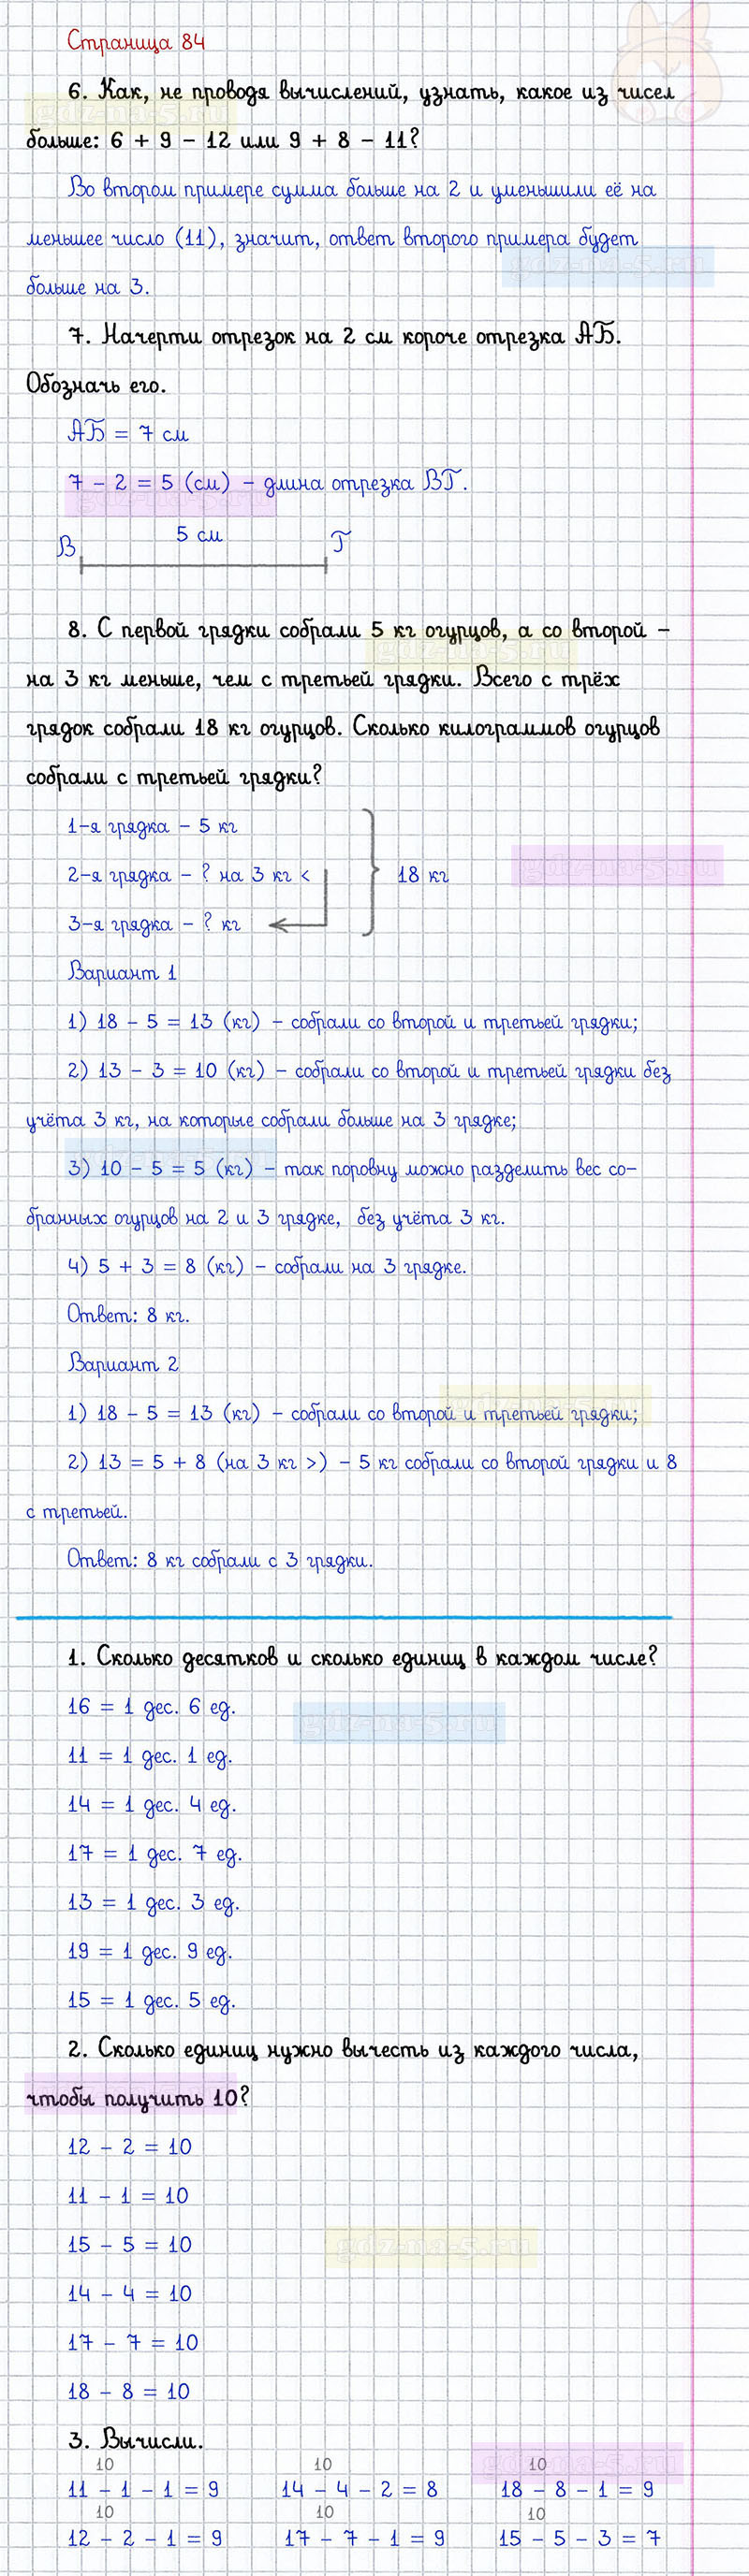 Страница 84
6. Как, не проводя вычислений, узнать, какое из чисел
больше: 6 + 9 - 12 или 9 + 8 - 11?
Во втором примере сумма больше на 2 и уменьшили её на
меньшее число (11), значит, ответ второго примера будет
больше на 3.
7. Начерти отрезок на 2 см короче отрезка АБ.
Обозначь его.
АБ = 7 см
7 - 2 = 5 (см) - длина отрезка ВГ.
В 5 см Г
8. С первой грядки собрали 5 кг огурцов, а со второй -
на 3 кг меньше, чем с третьей грядки. Всего с трёх
грядок собрали 18 кг огурцов. Сколько килограммов огурцов
собрали с третьей грядки?
1-я грядка - 5 кг
2-я грядка - ? на 3 кг < 18 кг
3-я грядка - ? кг
Вариант 1
1) 18 - 5 = 13 (кг) - собрали со второй и третьей грядки;
2) 13 - 3 = 10 (кг) - собрали со второй и третьей грядки без
учёта 3 кг, на которые собрали больше на 3 грядке;
3) 10 - 5 = 5 (кг) - так поровну можно разделить вес со-
бранных огурцов на 2 и 3 грядке, без учёта 3 кг.
4) 5 + 3 = 8 (кг) - собрали на 3 грядке.
Ответ: 8 кг.
Вариант 2
1) 18 - 5 = 13 (кг) - собрали со второй и третьей грядки;
2) 13 = 5 + 8 (на 3 кг >) - 5 кг собрали со второй грядки и 8
с третьей.
Ответ: 8 кг собрали с 3 грядки.
1. Сколько десятков и сколько единиц в каждом числе?
16 = 1 дес. 6 ед.
gdz-na-5.ru
11 = 1 дес. 1 ед.
14 = 1 дес. 4 ед.
17 = 1 дес. 7 ед.
13 = 1 дес. 3 ед.
19 = 1 дес. 9 ед.
15 = 1 дес. 5 ед.
2. Сколько единиц нужно вычесть из каждого числа,
чтобы получить 10?
12 - 2 = 10
11 - 1 = 10
15 - 5 = 10
gdz-na-5.ru
14 - 4 = 10
17 - 7 = 10
18 - 8 = 10
3. Вычисли.
10 10 10
11 - 1 - 1 = 9 14 - 4 - 2 = 8 18 - 8 - 1 = 9
10 10 10
12 - 2 - 1 = 9 17 - 7 - 1 = 9 15 - 5 - 3 = 7